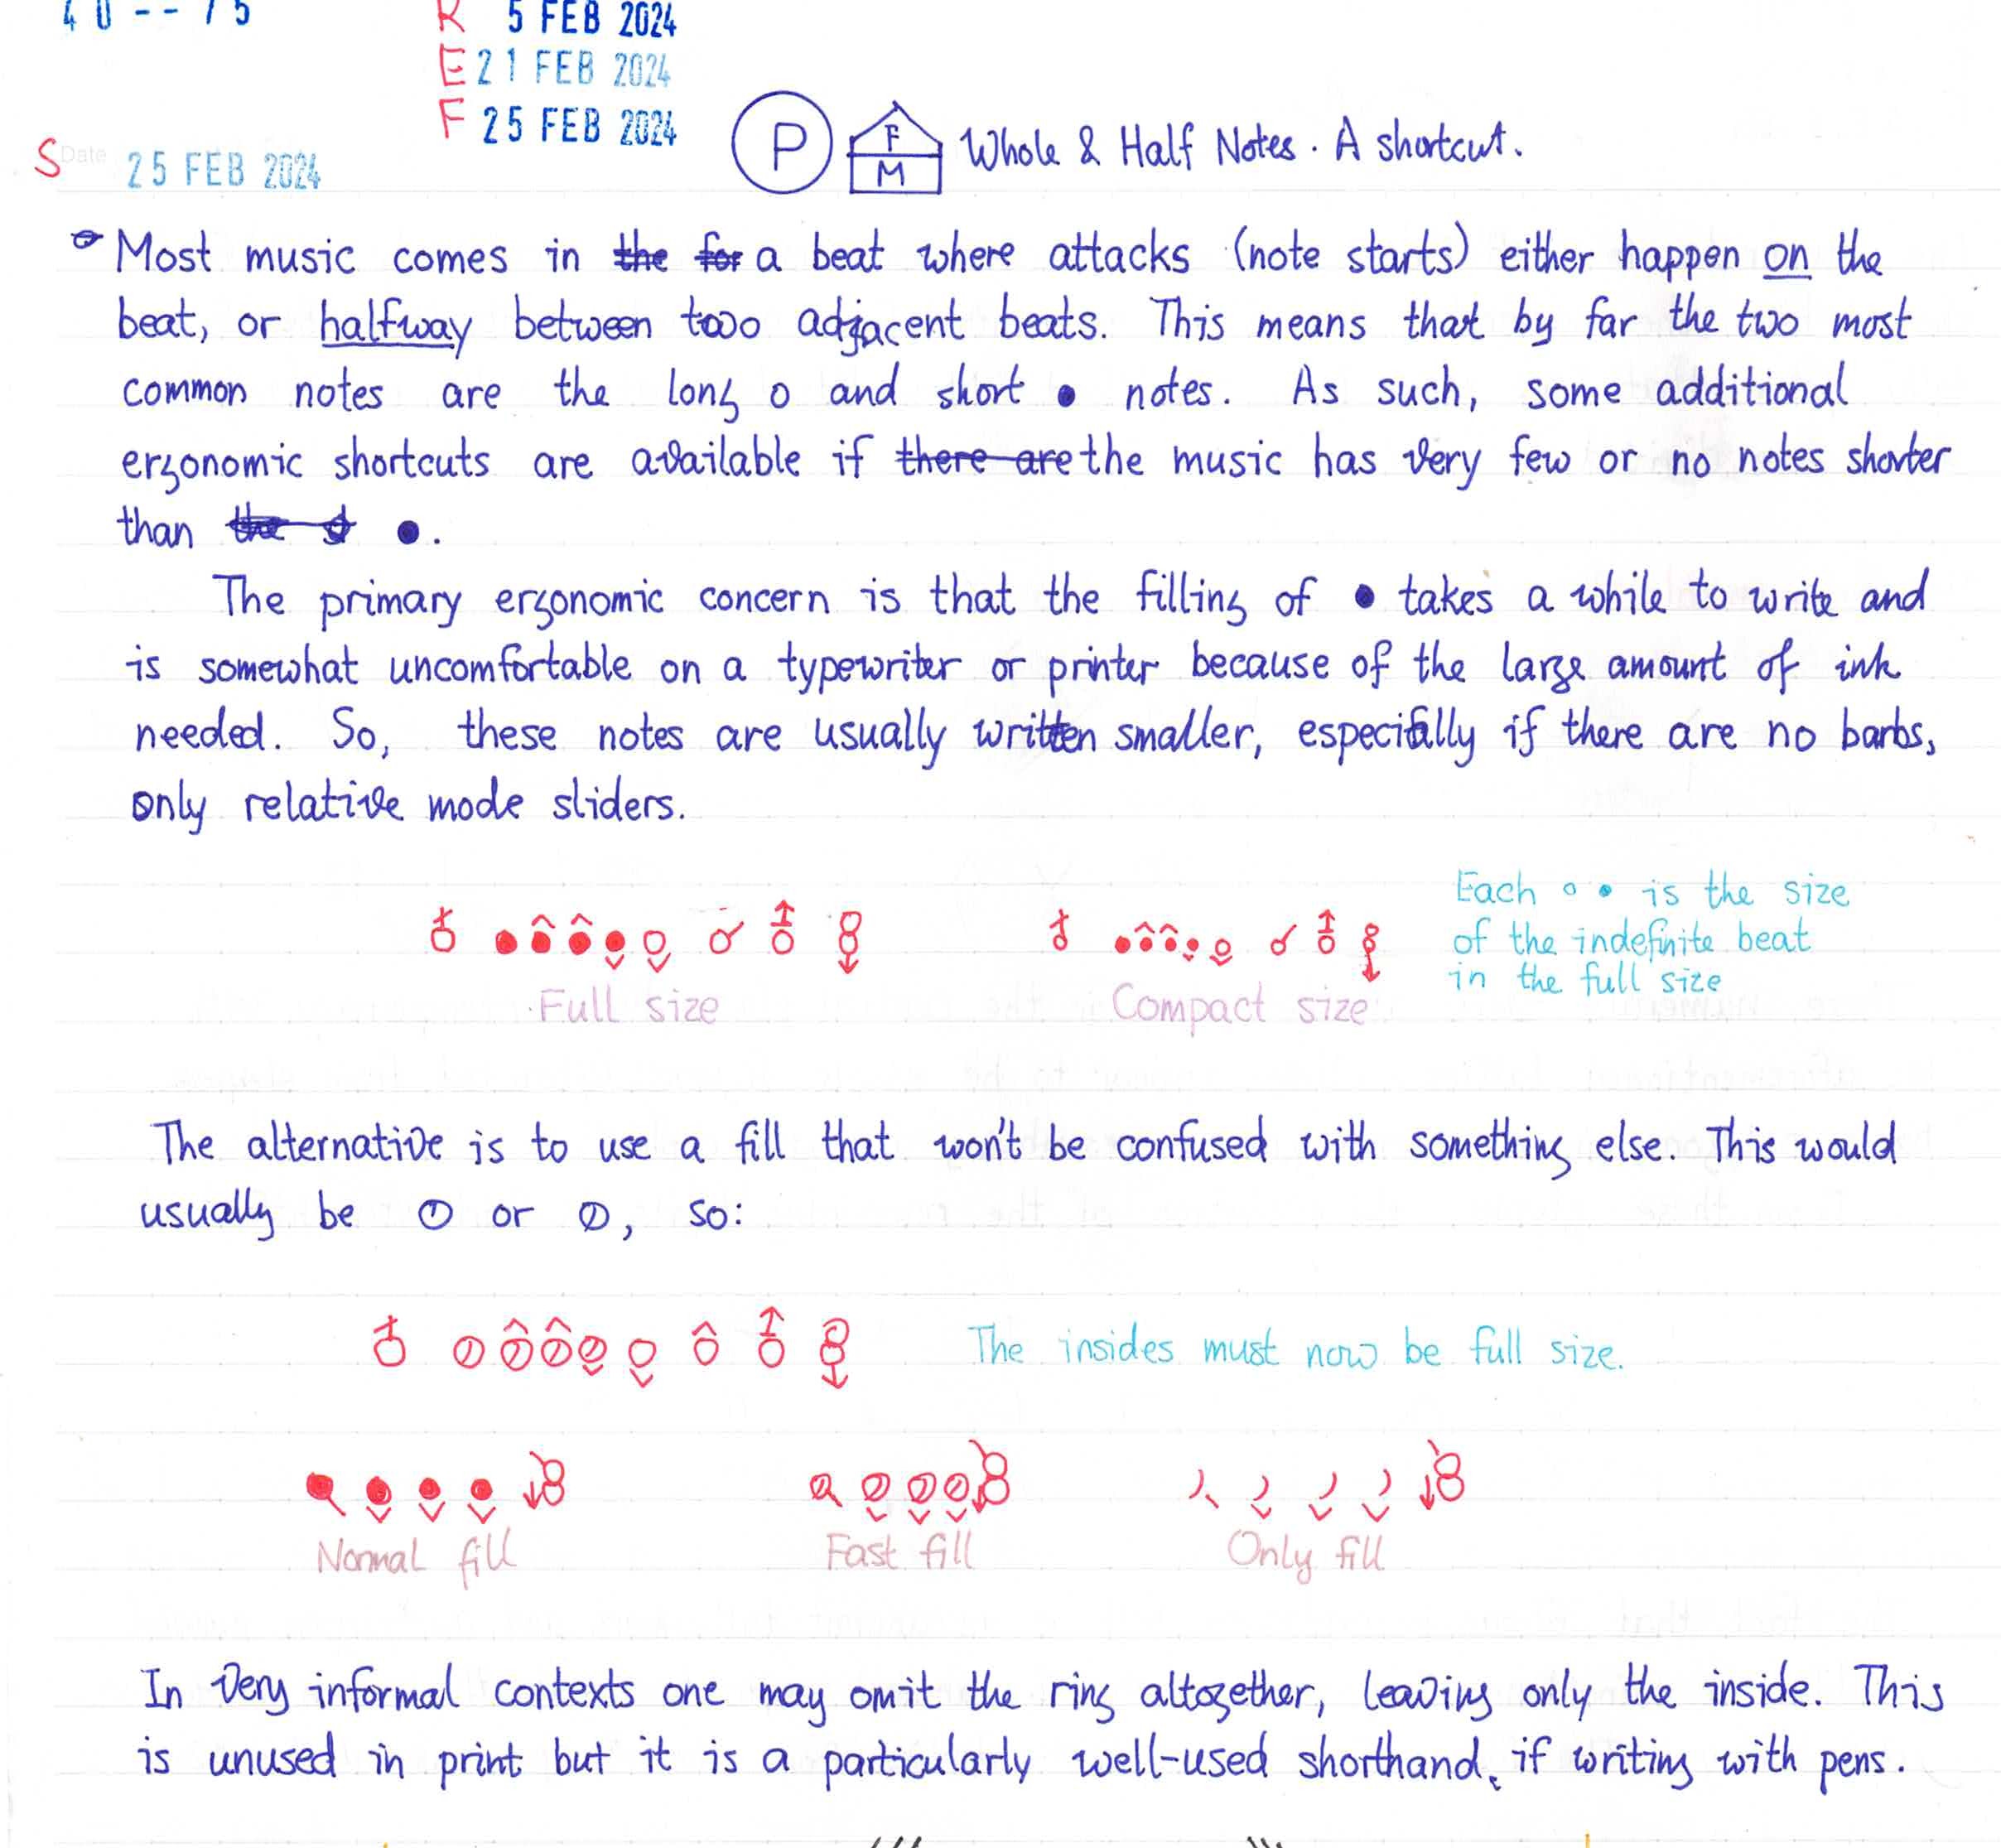 40--75
R 5 FEB 2024
E 21 FEB 2024
F 25 FEB 2024
S Date 25 FEB 2024
P F M Whole & Half Notes. A shortcut.
Most music comes in the for a beat where attacks (note starts) either happen on the
beat, or halfway between two adjacent beats. This means that by far the two most
common notes are the long o and short ● notes. As such, some additional
ergonomic shortcuts are available if there are the music has very few or no notes shorter
than the ●.
The primary ergonomic concern is that the filling of ● takes a while to write and
is somewhat uncomfortable on a typewriter or printer because of the large amount of ink
needed. So, these notes are usually written smaller, especially if there are no barbs,
only relative mode sliders.
Each ○ ● is the size
of the indefinite beat
in the full size
Full size
Compact size
The alternative is to use a fill that won't be confused with something else. This would
usually be or , so:
The insides must now be full size.
Normal fill
Fast fill
Only fill
In very informal contexts one may omit the ring altogether, leaving only the inside. This
is unused in print but it is a particularly well-used shorthand, if writing with pens.